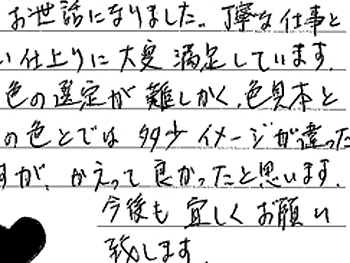 お世話になりました。丁寧な仕事と
い仕上りに大変満足しています。
色の選定が難しかく、色見本と
の色とでは多少イメージが違った
すが、かえって良かったと思います。
今後も宜しくお願い
致します。